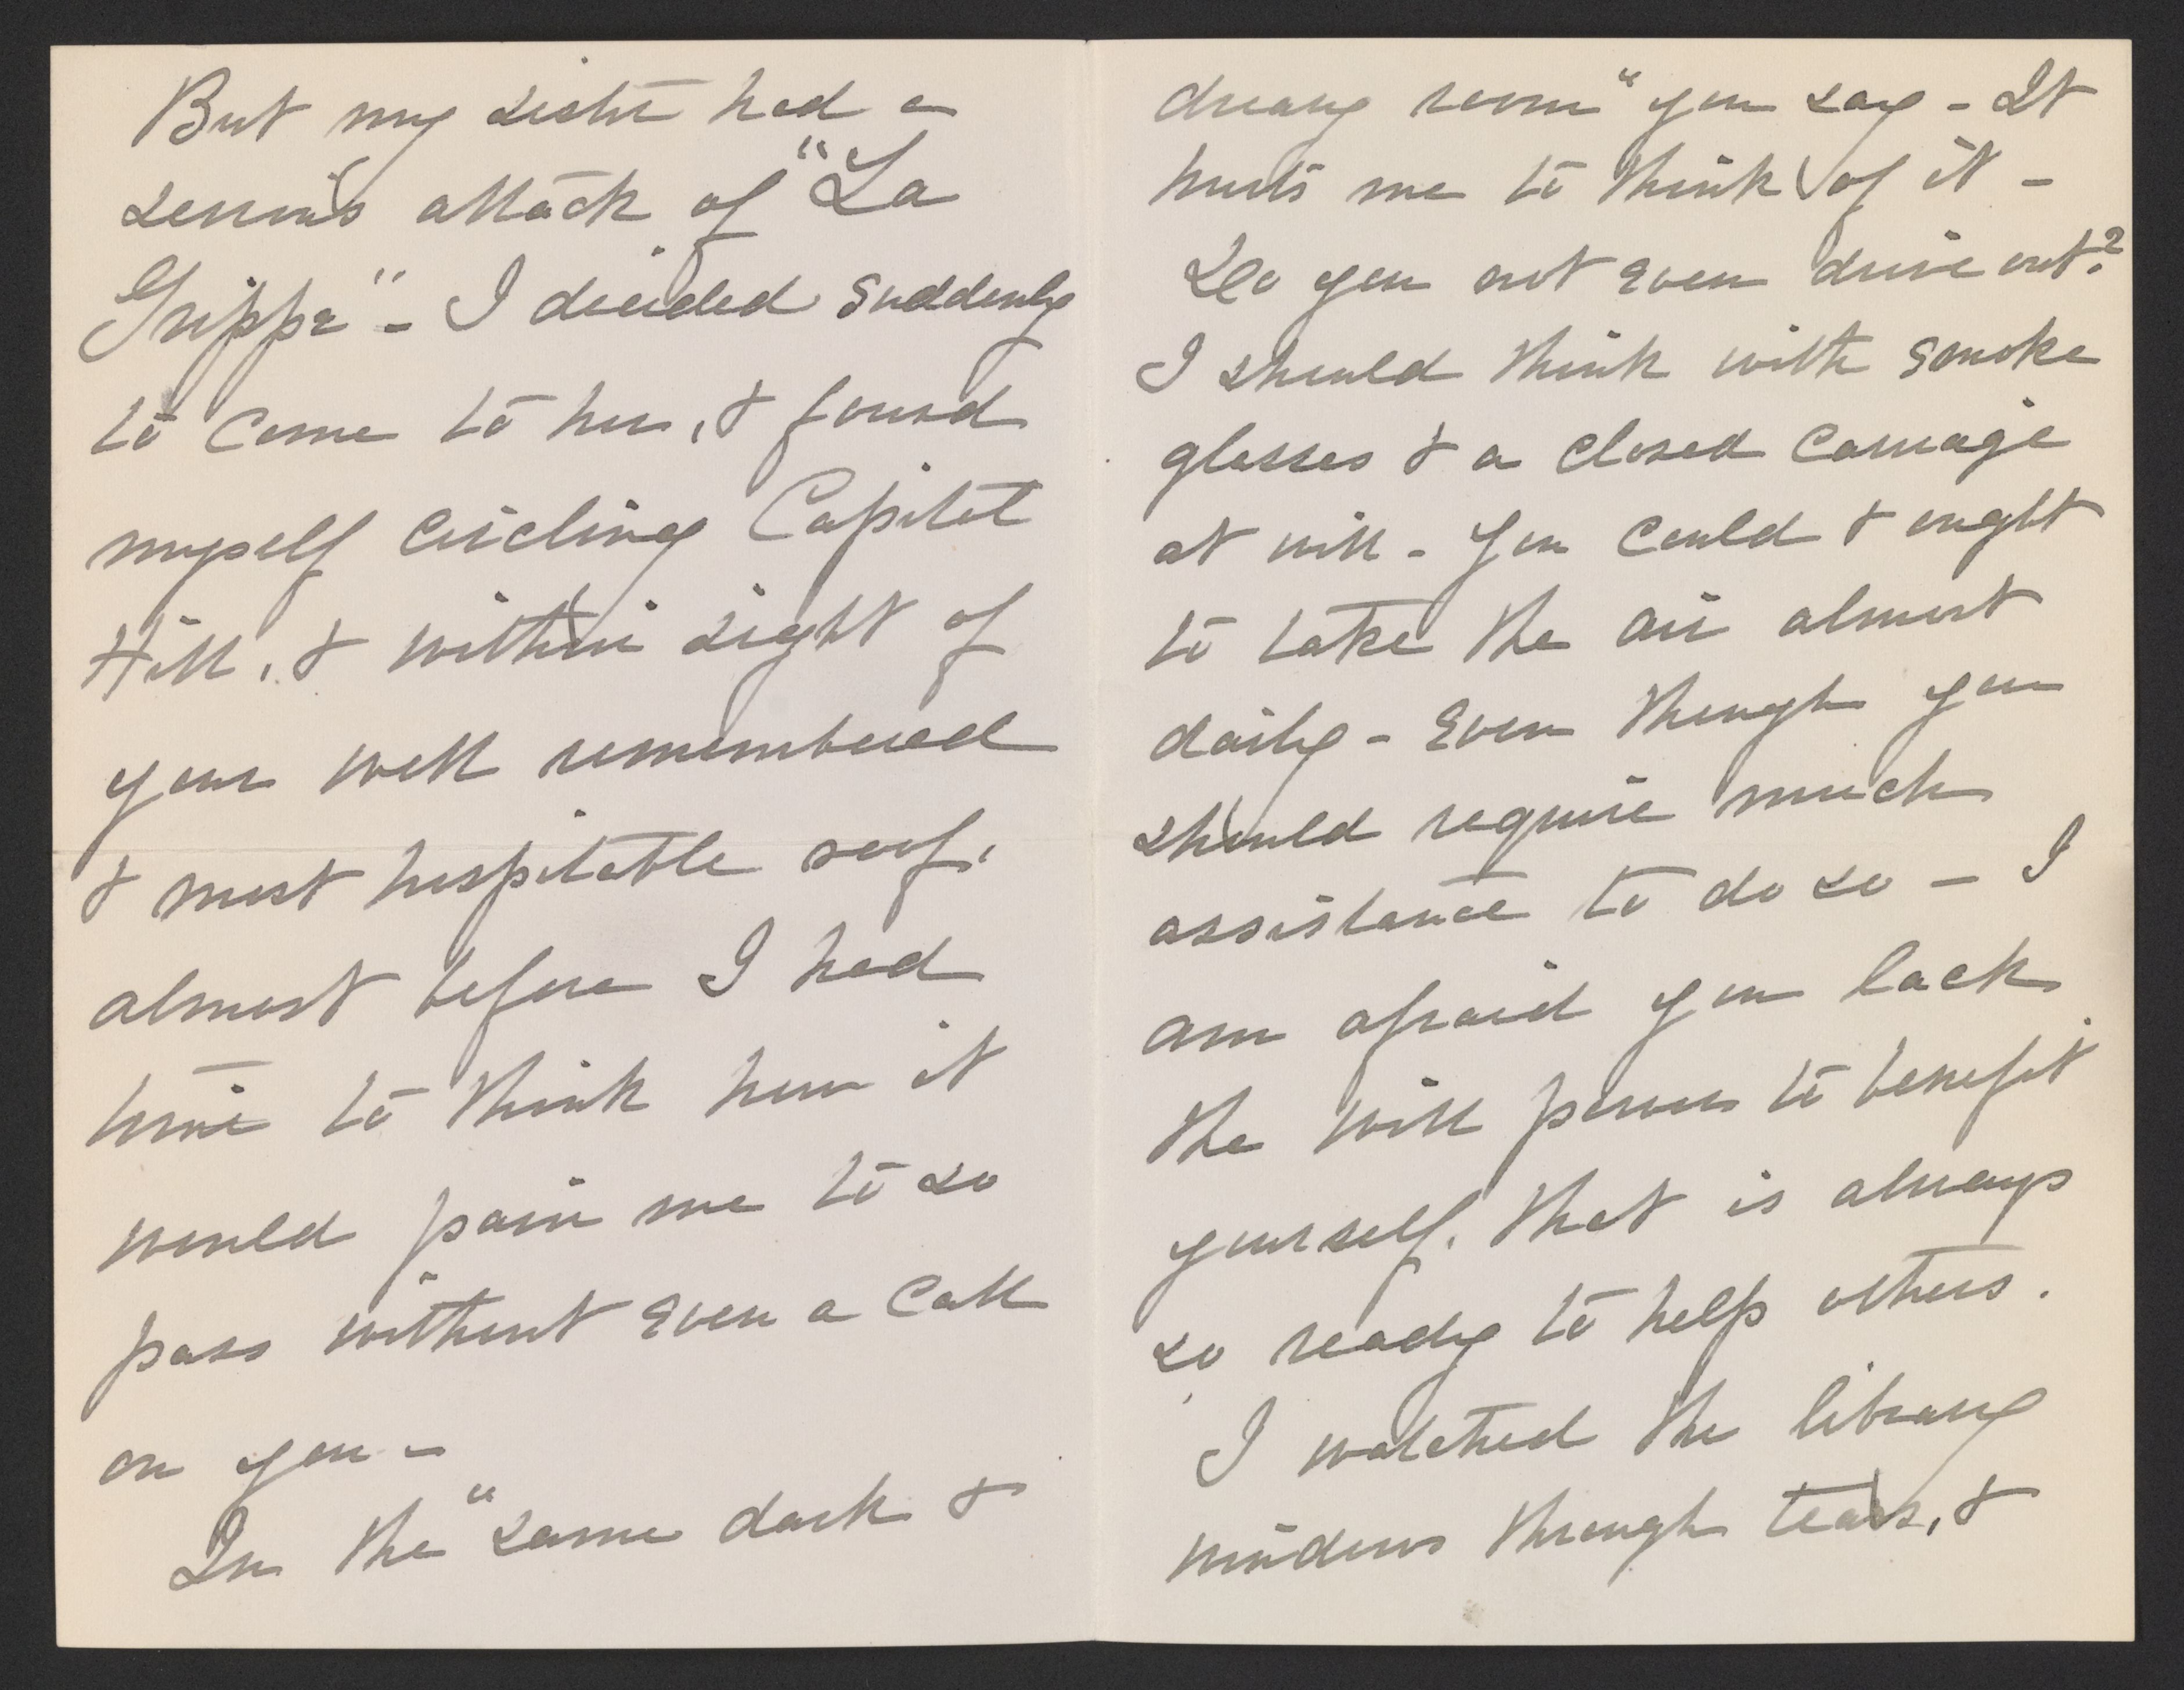 But my sister had a
serious attack of "La
Grippe" - I decided suddenly
to come to her, & found
myself circling Capitol
Hill, & within sight of
your well remembered
& most hospitable roof,
almost before I had
time to think how it
would pain me to so
pass without even a call
on you -
In the "same dark &
dreary room" you say - It
hurts me to think of it -
Do you not even drive out?
I should think with smoke
glasses & a closed carriage
at will - you could & ought
to take the air almost
daily - even though you
should require much
assistance to do so - I
am afraid you lack
the will power to benefit
yourself, that is always
so ready to help others.
I watched the library
windows through tears, &